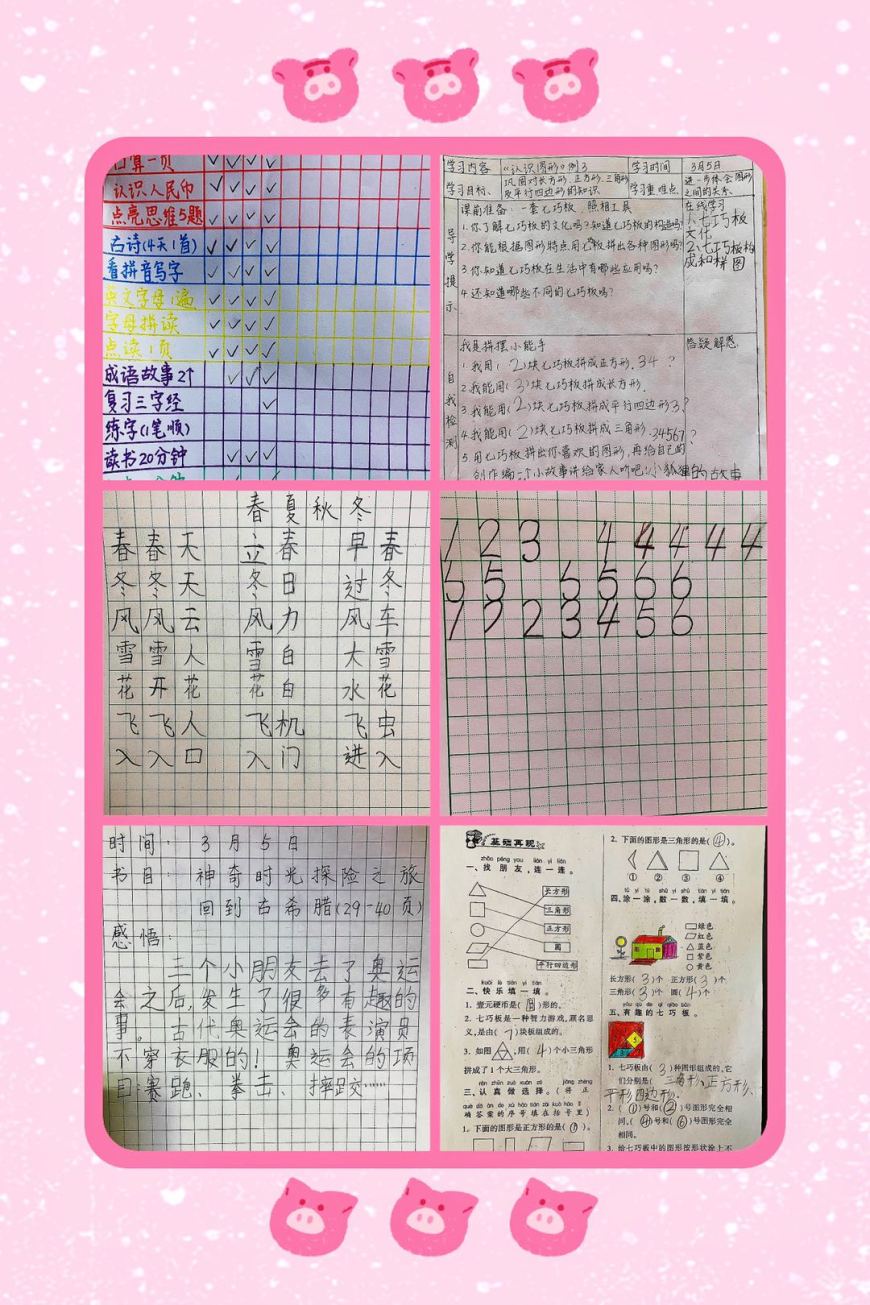 口算一页
认识人民币
点亮思维5题
古诗(4天1首)
看拼音写字
英文字母1遍
字母拼读
点读1页
成语故事2个
复习三字经
练字(1笔顺)
读书20分钟
学习内容 《认识图形》例3 学习时间 3月5日
学习目标、 巩固对长方形.正方形.三角形 学习重难点 进一步体会图形
及平行四边形的知识 之间的关系.
导学提示
课前准备:一套七巧板.照相工具
1.你了解七巧板的文化吗?知道七巧板的构造吗?
2.你能根据图形特点用七巧板拼出各种图形吗?
3.你知道七巧板在生活中有哪些应用吗?
4.还知道哪些不同的七巧板吗?
在线学习
1.七巧板
文化
2.七巧板构
成和样图
自我检测
我是拼摆小能手
1.我用(2)块七巧板拼成正方形.34?
2.我能用(3)块七巧板拼成长方形.
3.我能用(2)块七巧板拼成平行四边形3?
4.我能用(2)块七巧板拼成三角形.34567?
5.用七巧板拼出你喜欢的图形,再给自己的
创作编一个小故事讲给家人听吧!小狐狸的故事
答疑解惑.
春夏秋冬
春春天 立春 早春
冬冬天 冬日 过冬
风风云 风力 风车
雪雪人 雪白 大雪
花开花 花白 水花
飞飞人 飞机 飞虫
入入口 入门 进入
1 2 3 4 4 4 4 4
5 5 5 5 6 6
1 2 2 3 4 5 6
时间:3月5日
书目:神奇时光探险之旅
回到古希腊(29-40页)
感悟:
三个小朋友去了奥运
会之后,发生了很多有趣的
事。古代奥运会的表演员
不穿衣服的!奥运会的项
目:赛跑、拳击、摔跤……
基础再现
zhǎo péng you lián yì lián
一、找朋友,连一连。
长方形
三角形
正方形
圆
平行四边形
kuài lè tián yì tián
二、快乐填一填。
1. 壹元硬币是(圆)形的。
2. 七巧板是一种智力游戏,顾名思
义,是由(7)块板组成的。
3. 如图,用(4)个小三角形
拼成了1个大三角形。
rèn zhēn zuò xuǎn zé jiāng zhèng
三、认真做选择。(将正
què dá àn de xù hào tián zài kuò hào lǐ
确答案的序号填在括号里)
1. 下面的图形是正方形的是(①)。
2. 下面的图形是三角形的是(④)。
① ② ③ ④
tú yì tú shǔ yì shǔ tián yì tián
四、涂一涂,数一数,填一填。
绿色
红色
蓝色
紫色
黄色
长方形(3)个 正方形(3)个
三角形(3)个 圆(4)个
yǒu qù de qī qiǎo bǎn
五、有趣的七巧板。
1. 七巧板由(3)种图形组成的,它
们分别是(三角形、正方形、
平形四边形.
2. (①)号和(②)号图形完全相
同,(④)号和(⑥)号图形完全
相同。
3. 给七巧板中的图形按形状涂上不